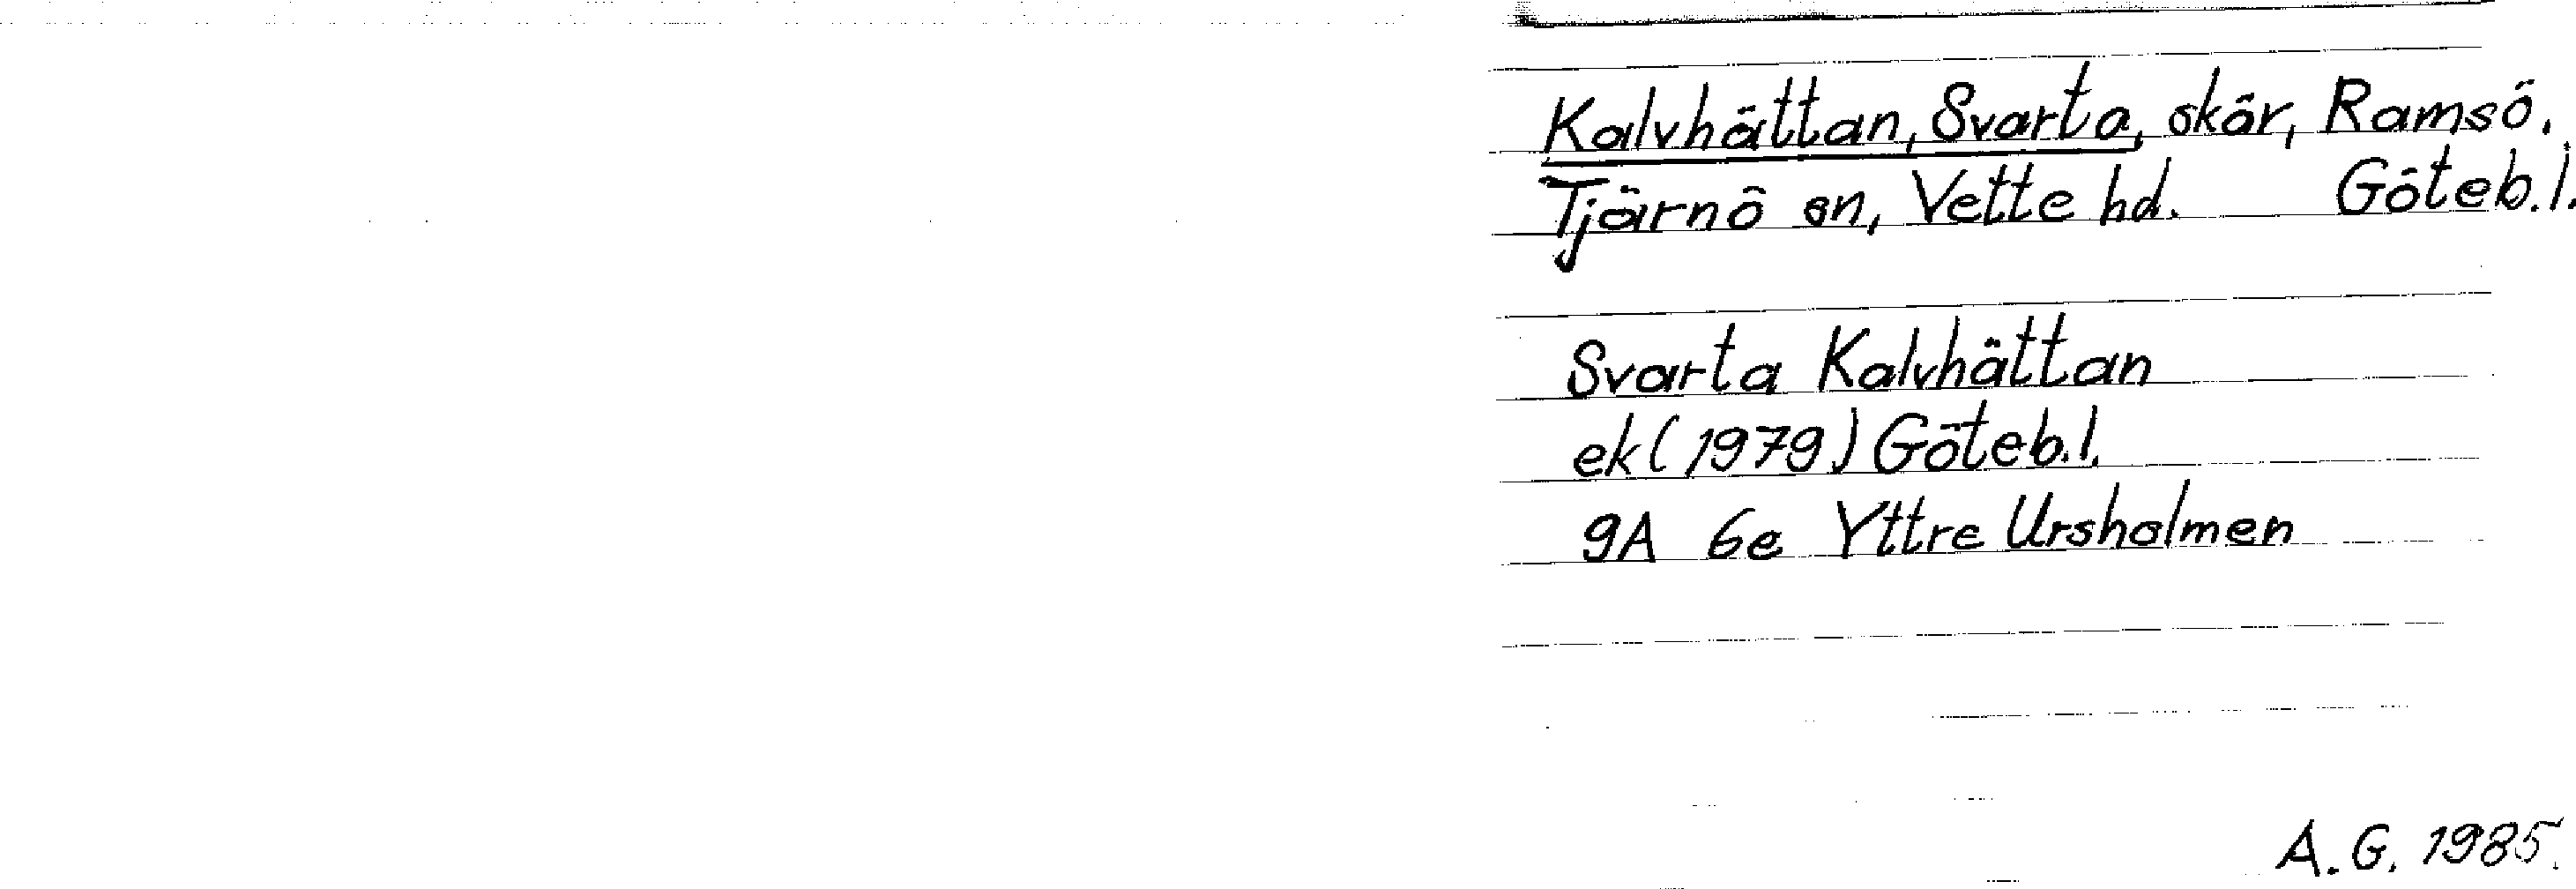 Kalvhättan, Svarta, skär, Ramsö,
Tjärnö sn, Vette hd. Göteb.l.
Svarta Kalvhättan
ek (1979) Göteb.l.
9A 6e Yttre Ursholmen
A.G. 1985.